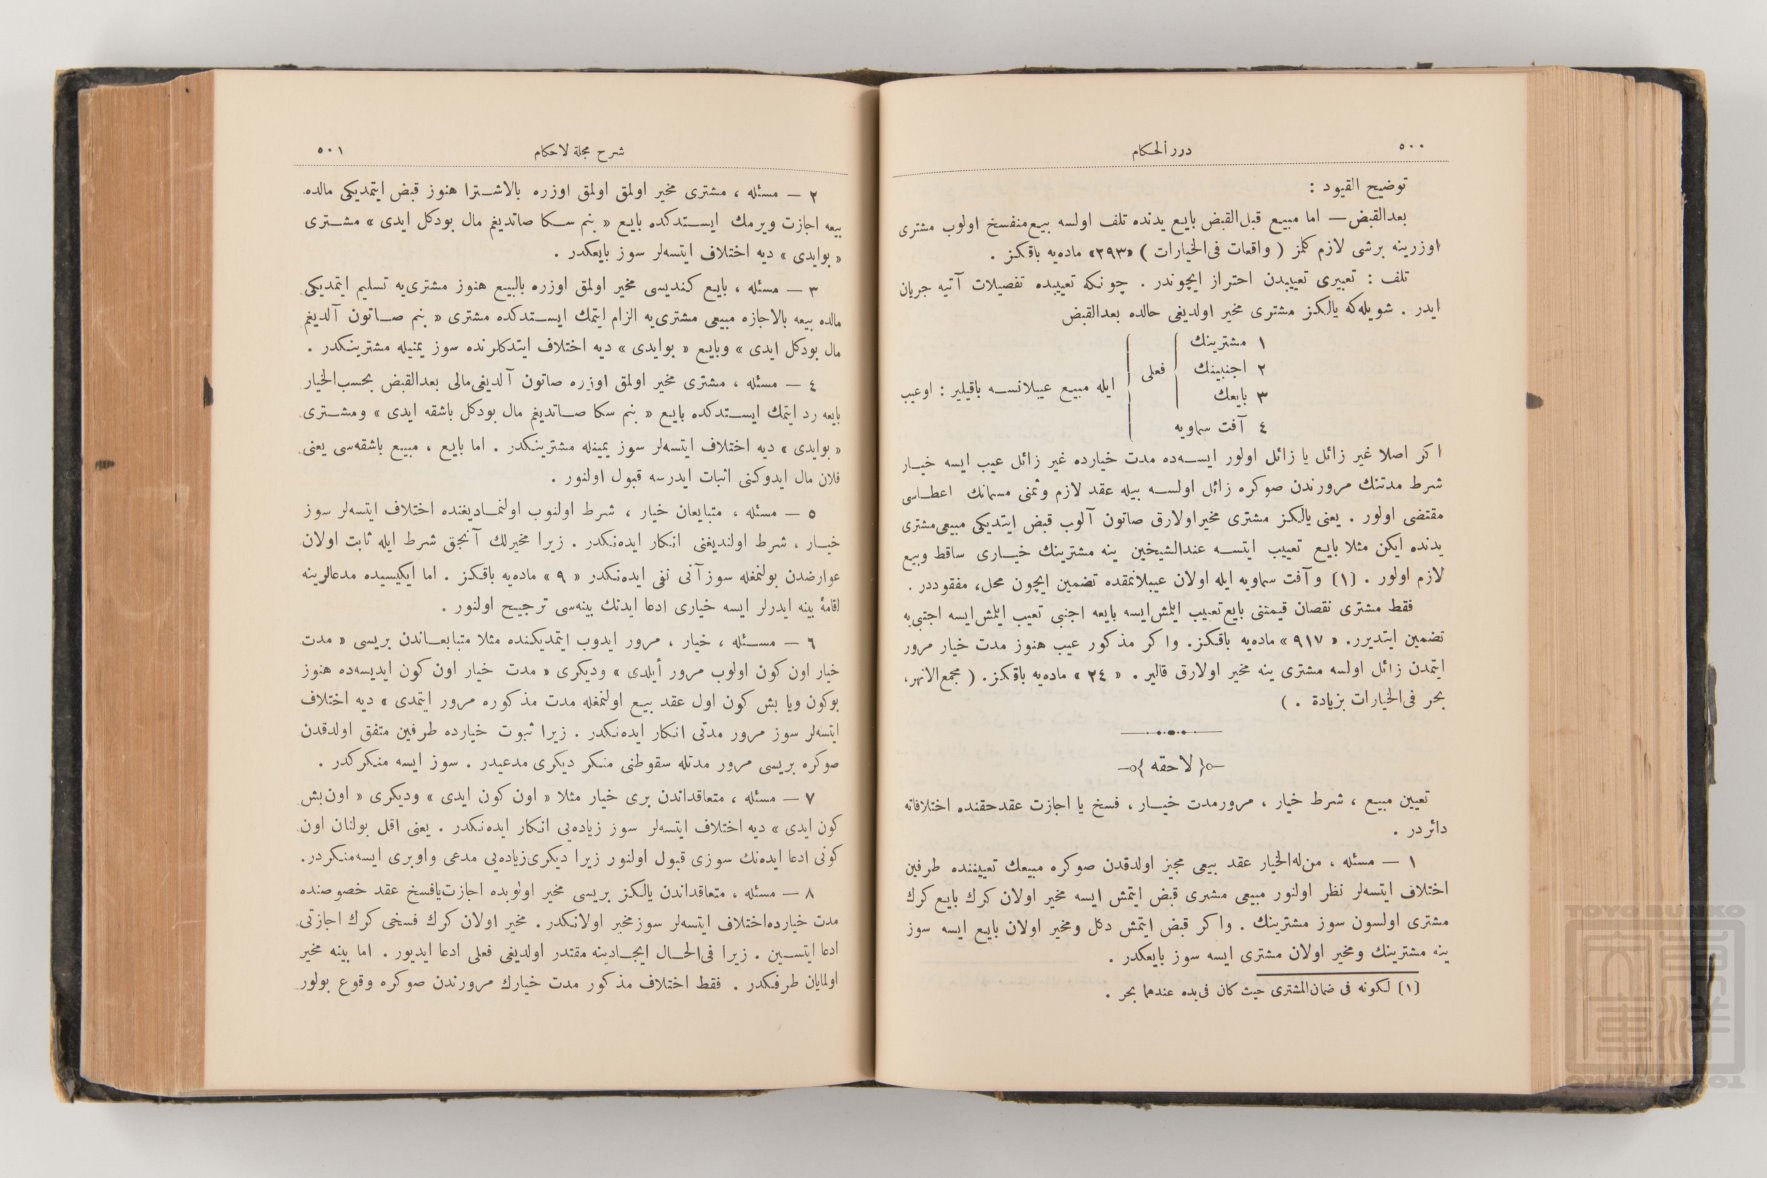 ٥٠٠
درر الحكام
توضيح القيود :
بعدالقبض — اما مبيع قبل‌القبض بايع يدنده تلف اولسه بيع منفسخ اولوب مشترى
اوزرينه برشى لازم كلمز ( واقعات فى‌الخيارات ) «٣٩٣» ماده‌يه باقكز .
تلف : تعبيرى تعييبدن احتراز ايچوندر . چونكه تعييبده تفصيلات آتيه جريان
ايدر . شويله‌كه يالكز مشترى مخير اولديغى حالده بعدالقبض
١ مشترينك
٢ اجنبينك
٣ بايعك
فعلى
٤ آفت سماويه
ايله مبيع عيبلانسه باقيلير : اوعيب
اكر اصلا غير زائل يا زائل اولور ايسه‌ده مدت خيارده غير زائل عيب ايسه خيار
شرط مدتنك مرورندن صوكره زائل اولسه بيله عقد لازم وثمنى مسمانك اعطاسى
مقتضى اولور . يعنى يالكز مشترى مخيراولارق صاتون آلوب قبض ايتديكى مبيعى مشترى
يدنده ايكن مثلا بايع تعييب ايتسه عندالشيخين ينه مشترينك خيارى ساقط وبيع
لازم اولور . (١) وآفت سماويه ايله اولان عيبلانمقده تضمين ايچون محل، مفقوددر .
فقط مشترى نقصان قيمتنى بايع تعييب ايلمش‌ايسه بايعه اجنبى تعيب ايلمش‌ايسه اجنبى‌يه
تضمين ايتديرر. « ٩١٧ » ماده‌يه باقكز. واكر مذكور عيب هنوز مدت خيار مرور
ايتمدن زائل اولسه مشترى ينه مخير اولارق قالير . « ٢٤ » ماده‌يه باقكز. ( مجمع‌الانهر،
بحر فى‌الخيارات بزيادة . )
{ لاحقه }
تعيين مبيع ، شرط خيار ، مرورمدت خيار ، فسخ يا اجازت عقدحقنده اختلافاته
دائردر .
١ — مسئله ، من‌له‌الخيار عقد بيعى مجيز اولدقدن صوكره مبيعك تعييننده طرفين
اختلاف ايتسه‌لر نظر اولنور مبيعى مشترى قبض ايتمش ايسه مخير اولان كرك بايع كرك
مشترى اولسون سوز مشترينك . واكر قبض ايتمش دكل ومخير اولان بايع ايسه سوز
ينه مشترينك ومخير اولان مشترى ايسه سوز بايعكدر .
(١) لكونه فى ضمان‌المشترى حيث كان فى‌يده عندهما بحر .
شرح مجلة لاحكام
٥٠١
٢ — مسئله ، مشترى مخير اولمق اولمق اوزره بالاشترا هنوز قبض ايتمديكى مالده
بيعه اجازت ويرمك ايستدكده بايع « بنم سكا صاتديغم مال بودكل ايدى » مشترى
« بوايدى » ديه اختلاف ايتسه‌لر سوز بايعكدر .
٣ — مسئله ، بايع كنديسى مخير اولمق اوزره بالبيع هنوز مشترى‌يه تسليم ايتمديكى
مالده بيعه بالاجازه مبيعى مشترى‌يه الزام ايتمك ايستدكده مشترى « بنم صاتون آلديغم
مال بودكل ايدى » وبايع « بوايدى » ديه اختلاف ايتدكلرنده سوز يمنيله مشترينكدر .
٤ — مسئله ، مشترى مخير اولمق اوزره صاتون آلديغى‌مالى بعدالقبض بحسب‌الخيار
بايعه رد ايتمك ايستدكده بايع « بنم سكا صاتديغم مال بودكل باشقه ايدى » ومشترى
« بوايدى » ديه اختلاف ايتسه‌لر سوز يمينله مشترينكدر . اما بايع ، مبيع باشقه‌سى يعنى
فلان مال ايدوكنى اثبات ايدرسه قبول اولنور .
٥ — مسئله ، متبايعان خيار ، شرط اولنوب اولنماديغنده اختلاف ايتسه‌لر سوز
خيار ، شرط اولنديغنى انكار ايده‌نكدر . زيرا مخيرلك آنجق شرط ايله ثابت اولان
عوارضدن بولنمغله سوز آنى نفى ايده‌نكدر « ٩ » ماده‌يه باقكز . اما ايكيسيده مدعالرينه
اقامۀ بينه ايدرلر ايسه خيارى ادعا ايدنك بينه‌سى ترجيح اولنور .
٦ — مسئله ، خيار ، مرور ايدوب ايتمديكنده مثلا متبايعاندن بريسى « مدت
خيار اون كون اولوب مرور أيلدى » وديكرى « مدت خيار اون كون ايديسه‌ده هنوز
بوكون ويا بش كون اول عقد بيع اولنمغله مدت مذكوره مرور ايتمدى » ديه اختلاف
ايتسه‌لر سوز مرور مدتى انكار ايده‌نكدر . زيرا ثبوت خيارده طرفين متفق اولدقدن
صوكره بريسى مرور مدتله سقوطنى منكر ديكرى مدعيدر . سوز ايسه منكركدر .
٧ — مسئله ، متعاقداندن برى خيار مثلا « اون كون ايدى » وديكرى « اون‌بش
كون ايدى » ديه اختلاف ايتسه‌لر سوز زياده‌يى انكار ايده‌نكدر . يعنى اقل بولنان اون
كونى ادعا ايده‌نك سوزى قبول اولنور زيرا ديكرى‌زياده‌يى مدعى واوبرى ايسه‌منكردر.
٨ — مسئله ، متعاقداندن يالكز بريسى مخير اولوبده اجازت‌يافسخ عقد خصوصنده
مدت خيارده‌اختلاف ايتسه‌لر سوزمخير اولانكدر . مخير اولان كرك فسخى كرك اجازتى
ادعا ايتسين . زيرا فى‌الحال ايجادينه مقتدر اولديغى فعلى ادعا ايديور . اما بينه مخير
اولمايان طرفكدر . فقط اختلاف مذكور مدت خيارك مرورندن صوكره وقوع بولور
TOYO BUNKO